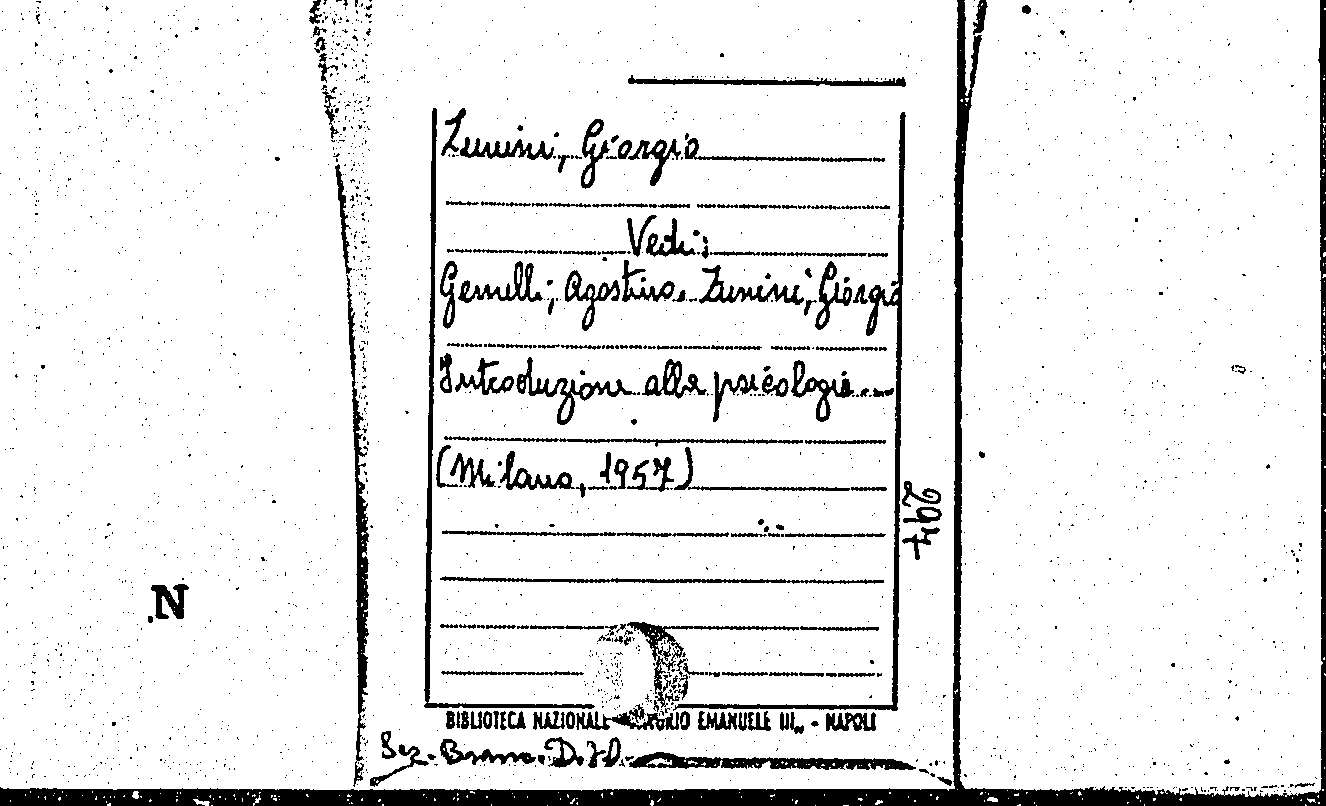 Zunini, Giorgio
Vedi:
Gemelli, Agostino. Zunini, Giorgio
Introduzione alla psicologia...
(Milano, 1957)
N
BIBLIOTECA NAZIONALE EMANUELE III„ - NAPOLI